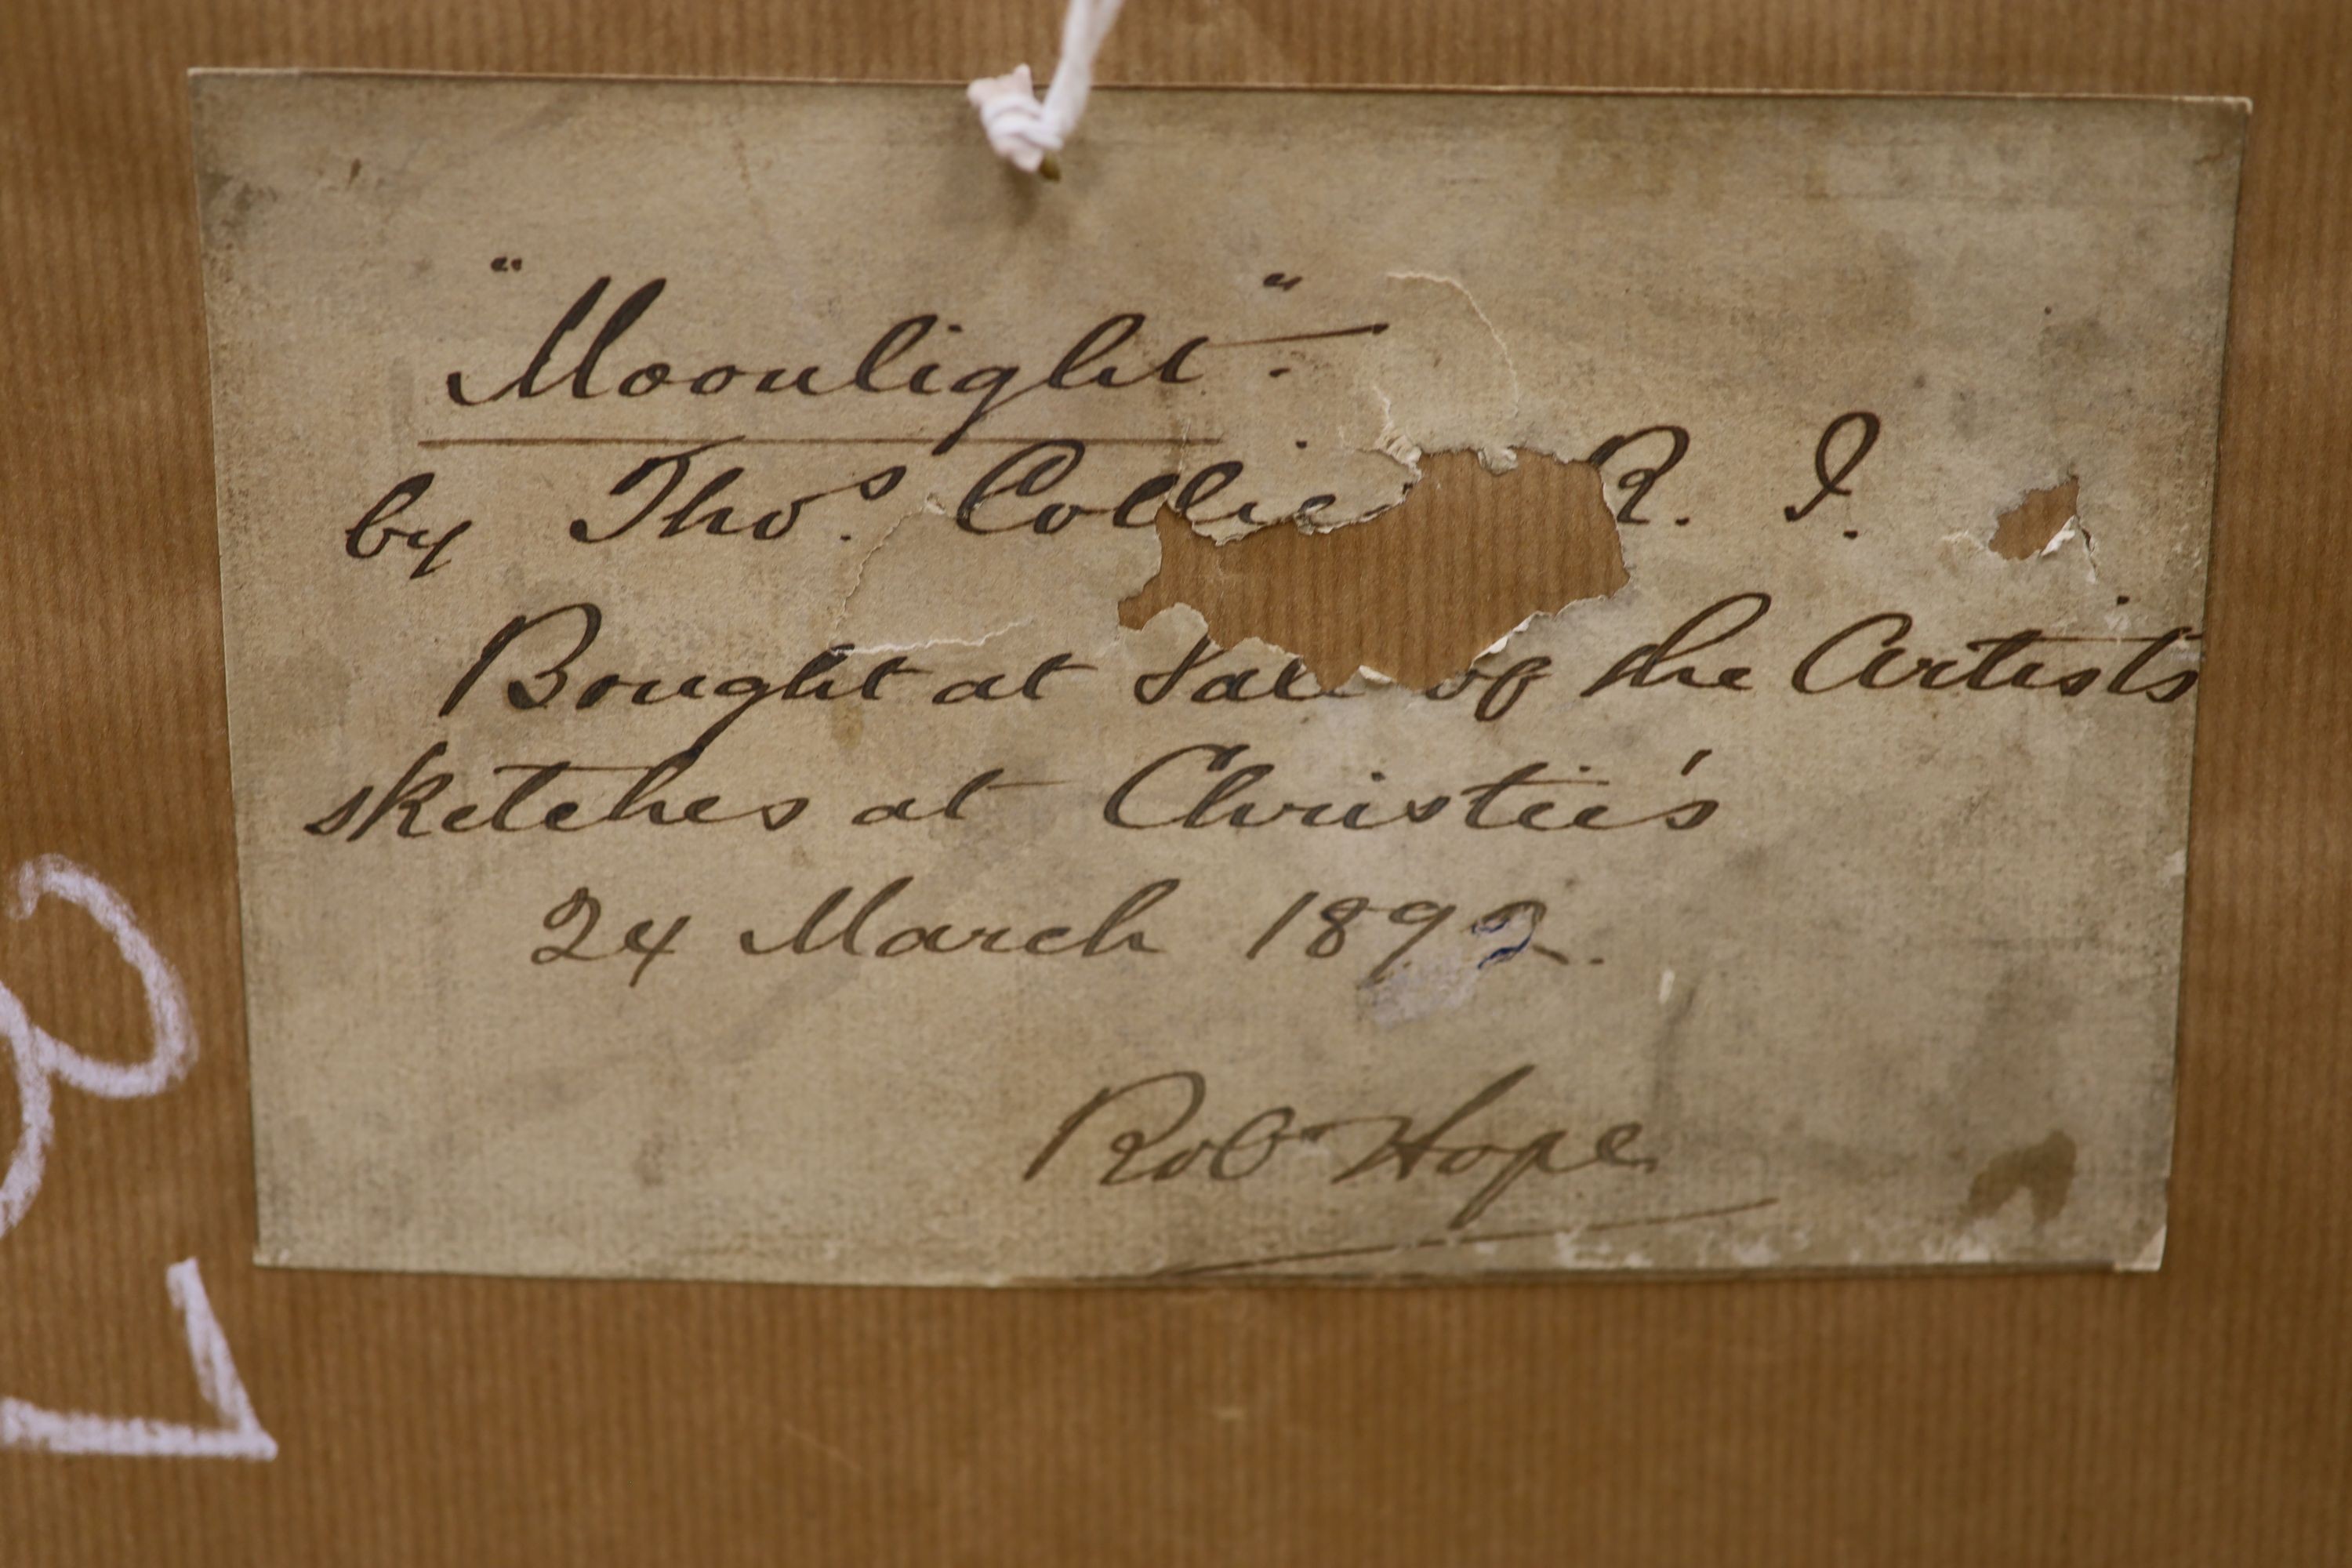 "Moonlight".
by Thos. Collie R. I.
Bought at Sale of the Artists
sketches at Christie's
24 March 1892.
Rob Hope